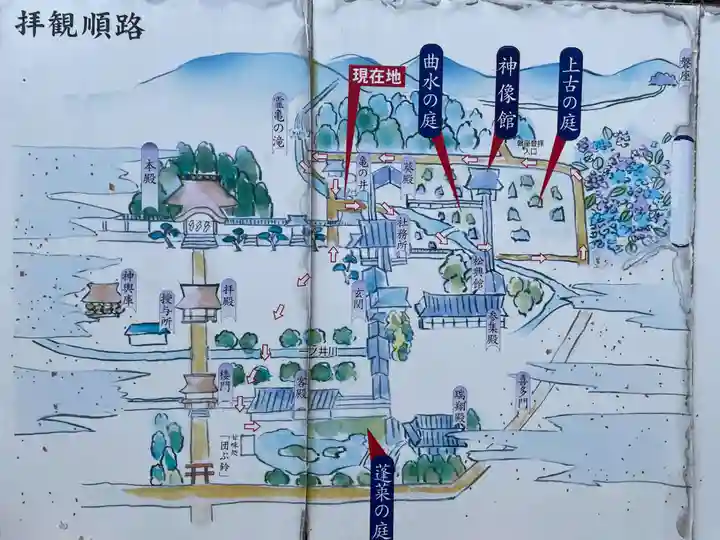 拝観順路
現在地
曲水の庭
神像館
上古の庭
磐座
霊亀の滝
亀の井
葵殿
磐座登拝
入口
本殿
社務所
松興館
神輿庫
授与所
拝殿
玄関
参集殿
一之井川
楼門
客殿
喜多門
瑞翔殿
甘味処
「団ぷ鈴」
蓬莱の庭